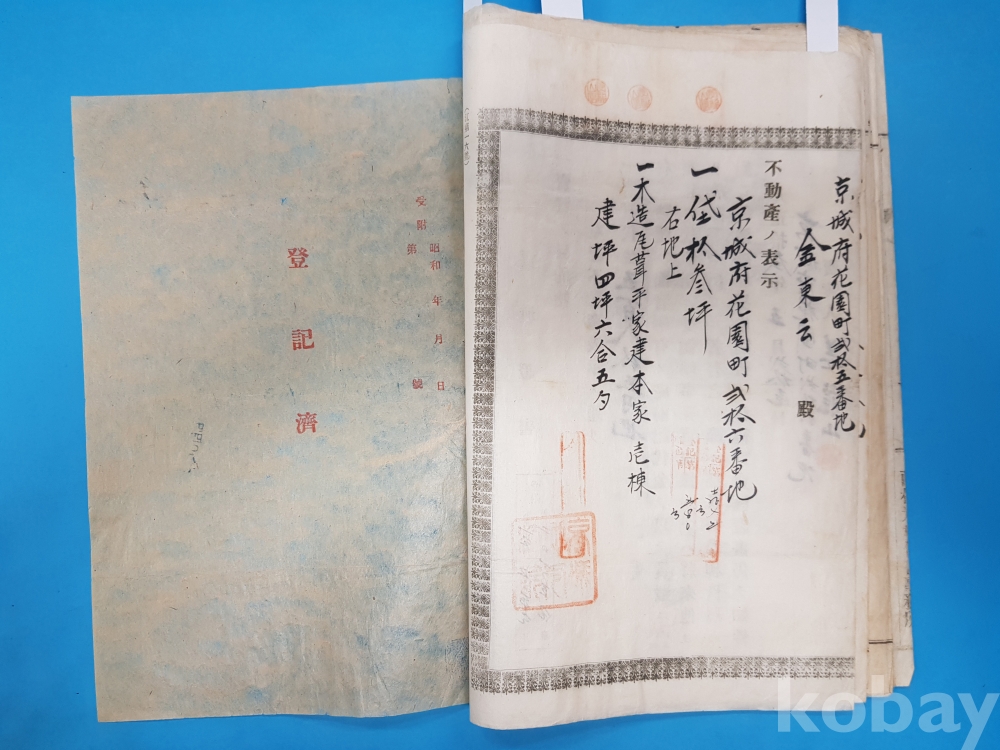 京城府花園町貳拾五番地
金東云 殿
不動產ノ表示
京城府花園町貳拾六番地
一垈拾叁坪
右地上
一木造瓦葺平家建本家壱棟
建坪四坪六合五勺
登記濟
受附
昭和 年 月 日
第 號
kobay